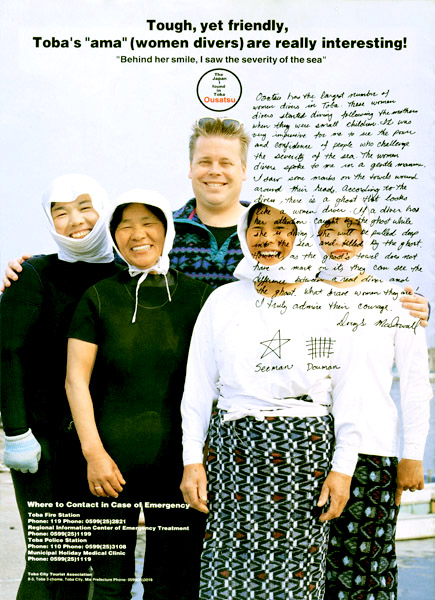 Tough, yet friendly,
Toba's "ama" (women divers) are really interesting!
"Behind her smile, I saw the severity of the sea"
The
Japan I
found
in
Toba
Ousatsu
Ousatsu has the largest number of
women divers in Toba. These women
divers started diving following the mothers
when they were small children. It was
very impressive for me to see the power
and confidence of people who challenge
the severity of the sea. The women
divers spoke to me in a gentle manner.
I saw some marks on the towels wound
around their heads. According to the
divers, there is a ghost that looks
like a women diver. If a diver has
her attention caught by the ghost while
she is diving, she will be pulled deep
into the sea and killed by the ghost.
However, as the ghost's towel does not
have a mark on it, they can see the
difference between a real diver and
the ghost. What brave women they are!
I truly admire their courage.
Seeman Douman
Where to Contact in Case of Emergency
Toba Fire Station
Phone: 119 Phone: 0599(25)2821
Regional Information Center of Emergency Treatment
Phone: 0599(25)1199
Toba Police Station
Phone: 110 Phone: 0599(25)3108
Municipal Holiday Medical Clinic
Phone: 0599(25)1119
Toba City Tourist Association
Toba City, Mie Prefecture Phone: